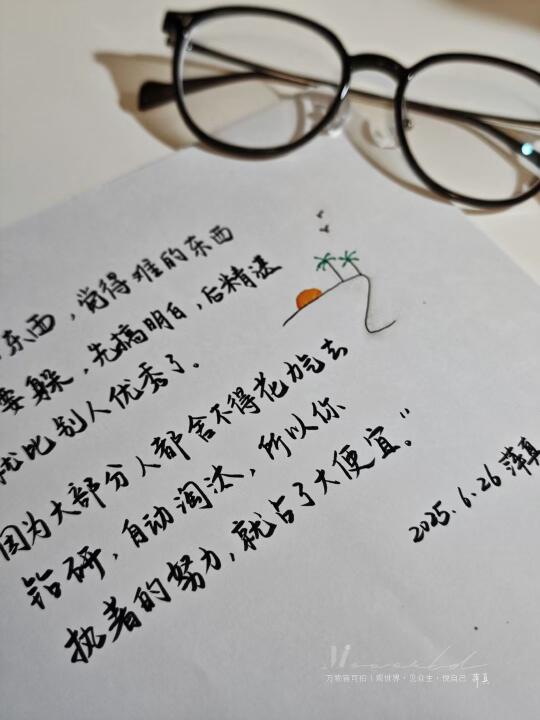 东西，觉得难的东西
要躲，先搞明白，后精湛
就比别人优秀了。
因为大部分人都舍不得花力气去
钻研，自动淘汰，所以你
执着的努力，就占了大便宜。”
2025.6.26 萍真
万物皆可拍丨观世界·见众生·悦自己 萍真